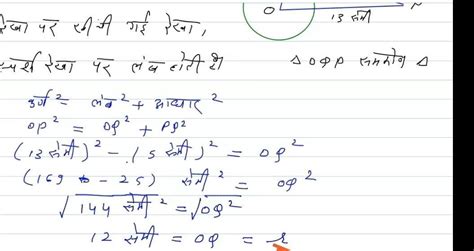 O 13 सेमी
रेखा पर खींची गई रेखा,
स्पर्श रेखा पर लंब होती है Δ OQP समकोण Δ
कर्ण² = लंब² + आधार²
OP² = OQ² + PQ²
(13 सेमी)² - (5 सेमी)² = OQ²
(169 - 25) सेमी² = OQ²
√144 सेमी² = √OQ²
12 सेमी = OQ = r